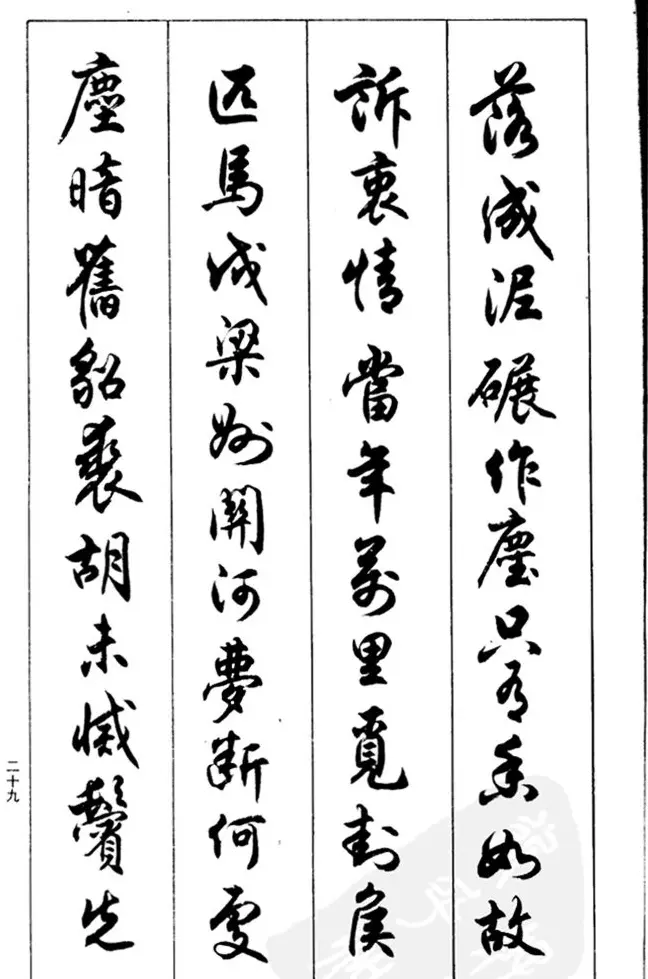 落成泥碾作塵只有香如故
訴衷情當年萬里覓封侯
匹馬戍梁州關河夢斷何處
塵暗舊貂裘胡未滅鬢先
二十九